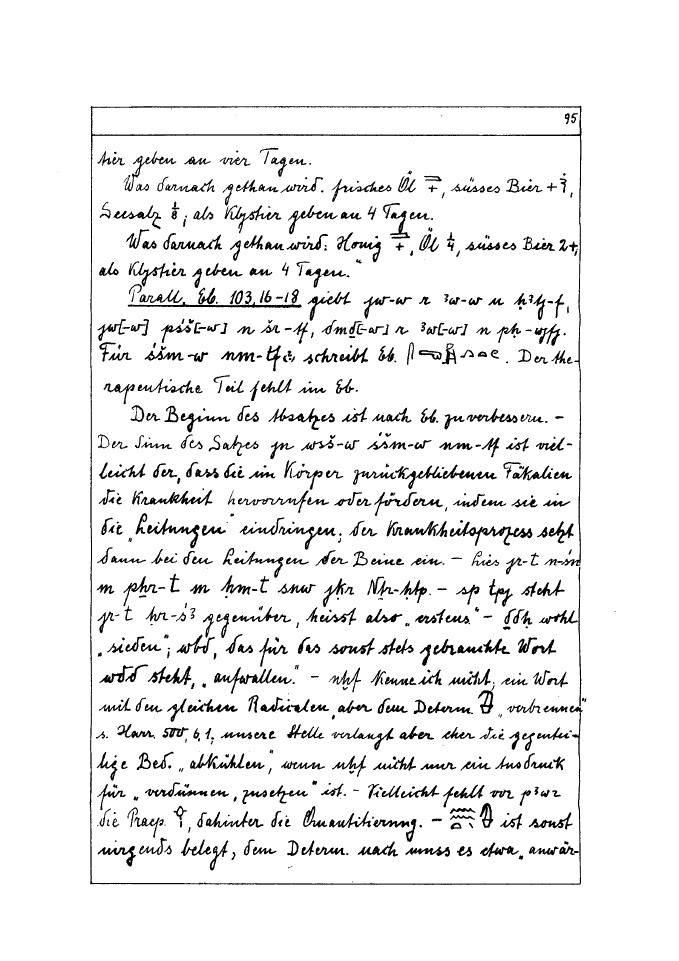 95
tier geben an vier Tagen.
Was darnach gethan wird. frisches Öl, süsses Bier +,
Seesalz 1/8; als Klystier geben an 4 Tagen.
Was darnach gethan wird: Honig, Öl 1/4, süsses Bier 2+,
als Klystier geben an 4 Tagen."
Parall. Eb. 103,16-18 giebt jw-w r ꜣw-w n
jw[-w] pšš[-w] n šr-tf, dmḏ[-w] r ꜣw[-w] n pḥ-wjfj.
Für śšm-w nm-tf schreibt Eb. Der the-
rapeutische Teil fehlt im Eb.
Der Beginn des Absatzes ist nach Eb. zu verbessern. –
Der Sinn des Satzes jn wsš-w śšm-w nm-tf ist viel-
leicht der, dass die im Körper zurückgebliebenen Fäkalien
die Krankheit hervorrufen oder fördern, indem sie in
die „Leitungen" eindringen; der Krankheitsprozess setzt
dann bei den Leitungen der Beine ein. – hies jr-t n-śn
m pẖr-t m hm-t snw jḳr Nfr-ḥtp. – sp tpj steht
jr-t ḥr-śꜣ gegenüber, heisst also „erstens" – wohl
„sieden"; wbd, das für das sonst stets gebrauchte Wort
wdd steht, „aufwallen." – nḫf kenne ich nicht; ein Wort
mit den gleichen Radicalen, aber dem Determ. „verbrennen"
s. Harr. 500, 6,1; unsere Stelle verlangt aber eher die gegentei-
lige Bed. „abkühlen", wenn nḫf nicht nur ein Ausdruck
für „verdünnen, zusetzen" ist. – Vielleicht fehlt vor pꜣwr
die Praep., dahinter die Quantitierung. – ist sonst
nirgends belegt, dem Determ. nach muss es etwa „anwär-